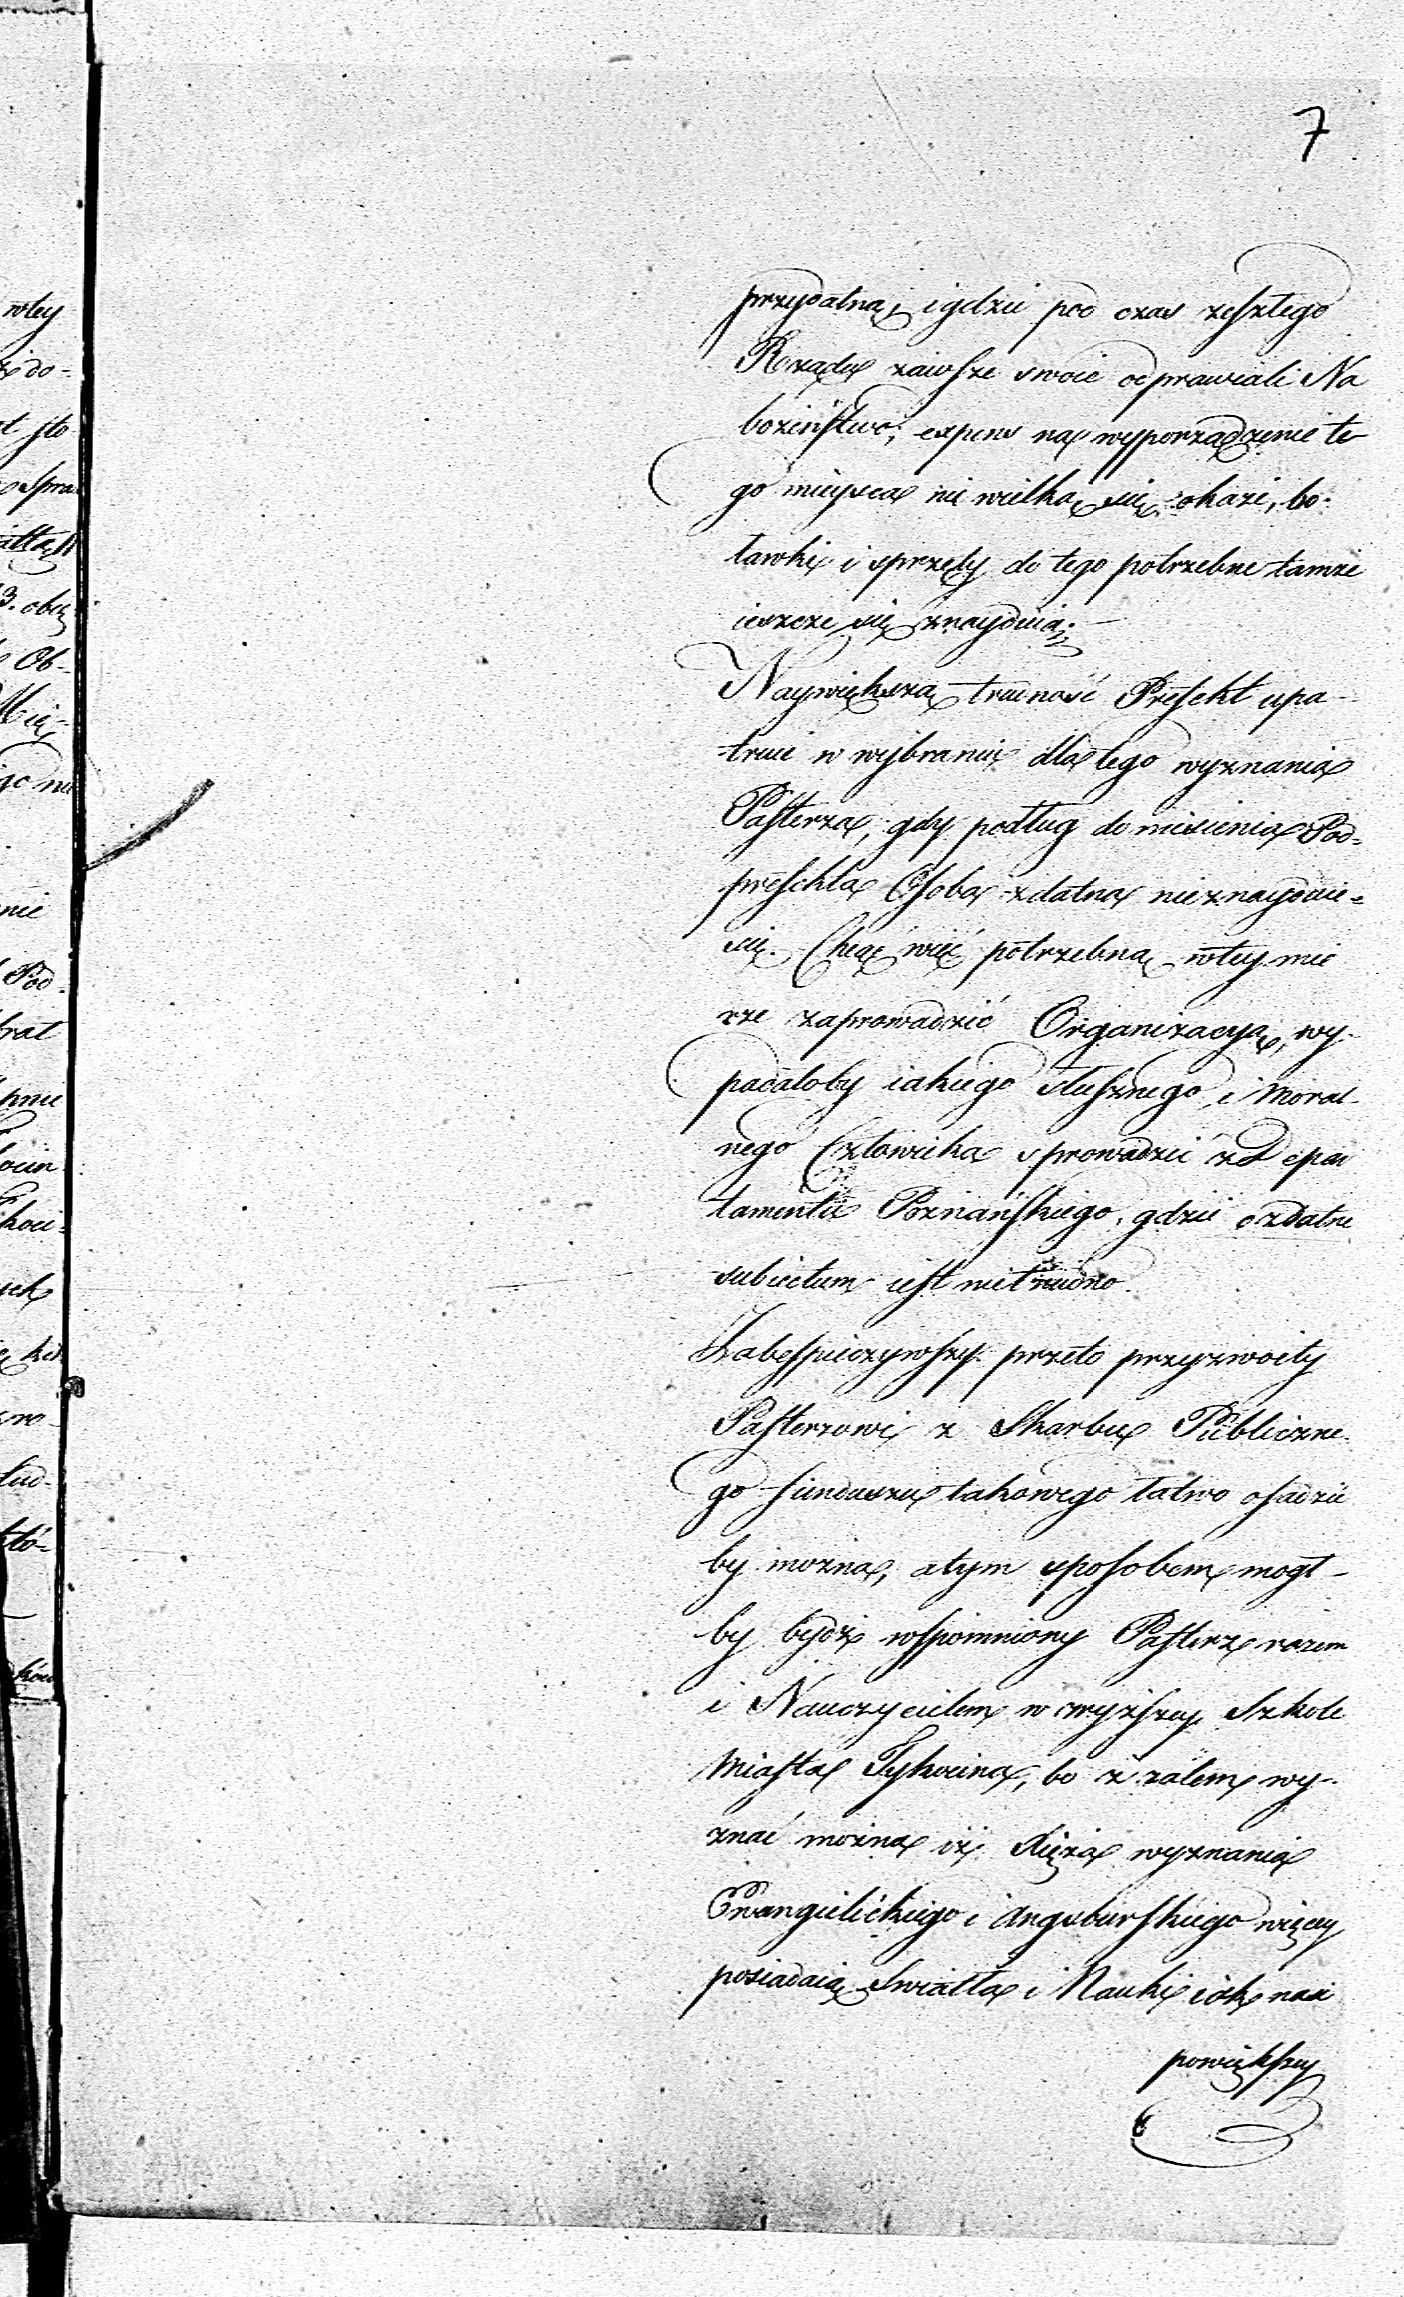 7
przydatną, i gdzie pod czas zeszłego
Rządu zawsze swoie odprawiali Na
bożeństwo; expens na wyporządzenie te
go mieysca nie wielka się okaże, bo
ławki i sprzęty do tego potrzebne tamże
ieszcze się znayduią.
Naywiększą trudność Prefekt upa-
truie w wybraniu dla tego wyznania
Pasterza, gdy podług doniesienia Pod-
prefekta Osoba zdatna nieznayduie-
się. Chcąc więc potrzebną w tey mie
rze zaprowadzić Organizacyą, wy-
padałoby iakiego słusznego i moral-
nego Człowieka sprowadzić z Depar
tamentu Poznańskiego, gdzie o zdatne
subiectum iest nietrudno.
Zabespieczywszy przeto przyzwoity
Pasterzowi z Skarbu Publiczne-
go fundusz takowego łatwo osadzić
by można, a tym sposobem mogł-
by bydź wspomniony Pasterz razem
i Nauczycielem w wyższey Szkole
Miasta Tykocina, bo z żalem wy-
znać można iż Xięża wyznania
Ewangielickiego i Augsburskiego więcey
posiadaią Swiatła i Nauki iak nasi
powiększey
wtey
do-
sto
spra-
3. obu
Ob-
nie
Pod-